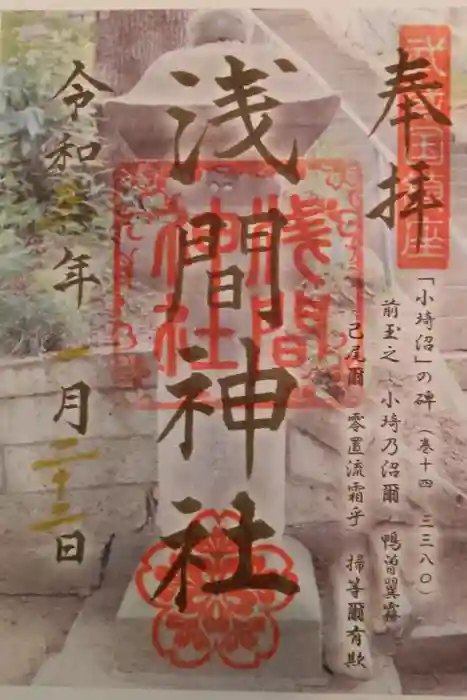 奉拝
「小埼沼」の碑(巻十四 三三八〇)
前玉之 小埼乃沼爾 鴨曽翼霧
己尾爾 零置流霜乎 掃等爾有欺
浅間神社
浅間神社
令和三年一月二十二日